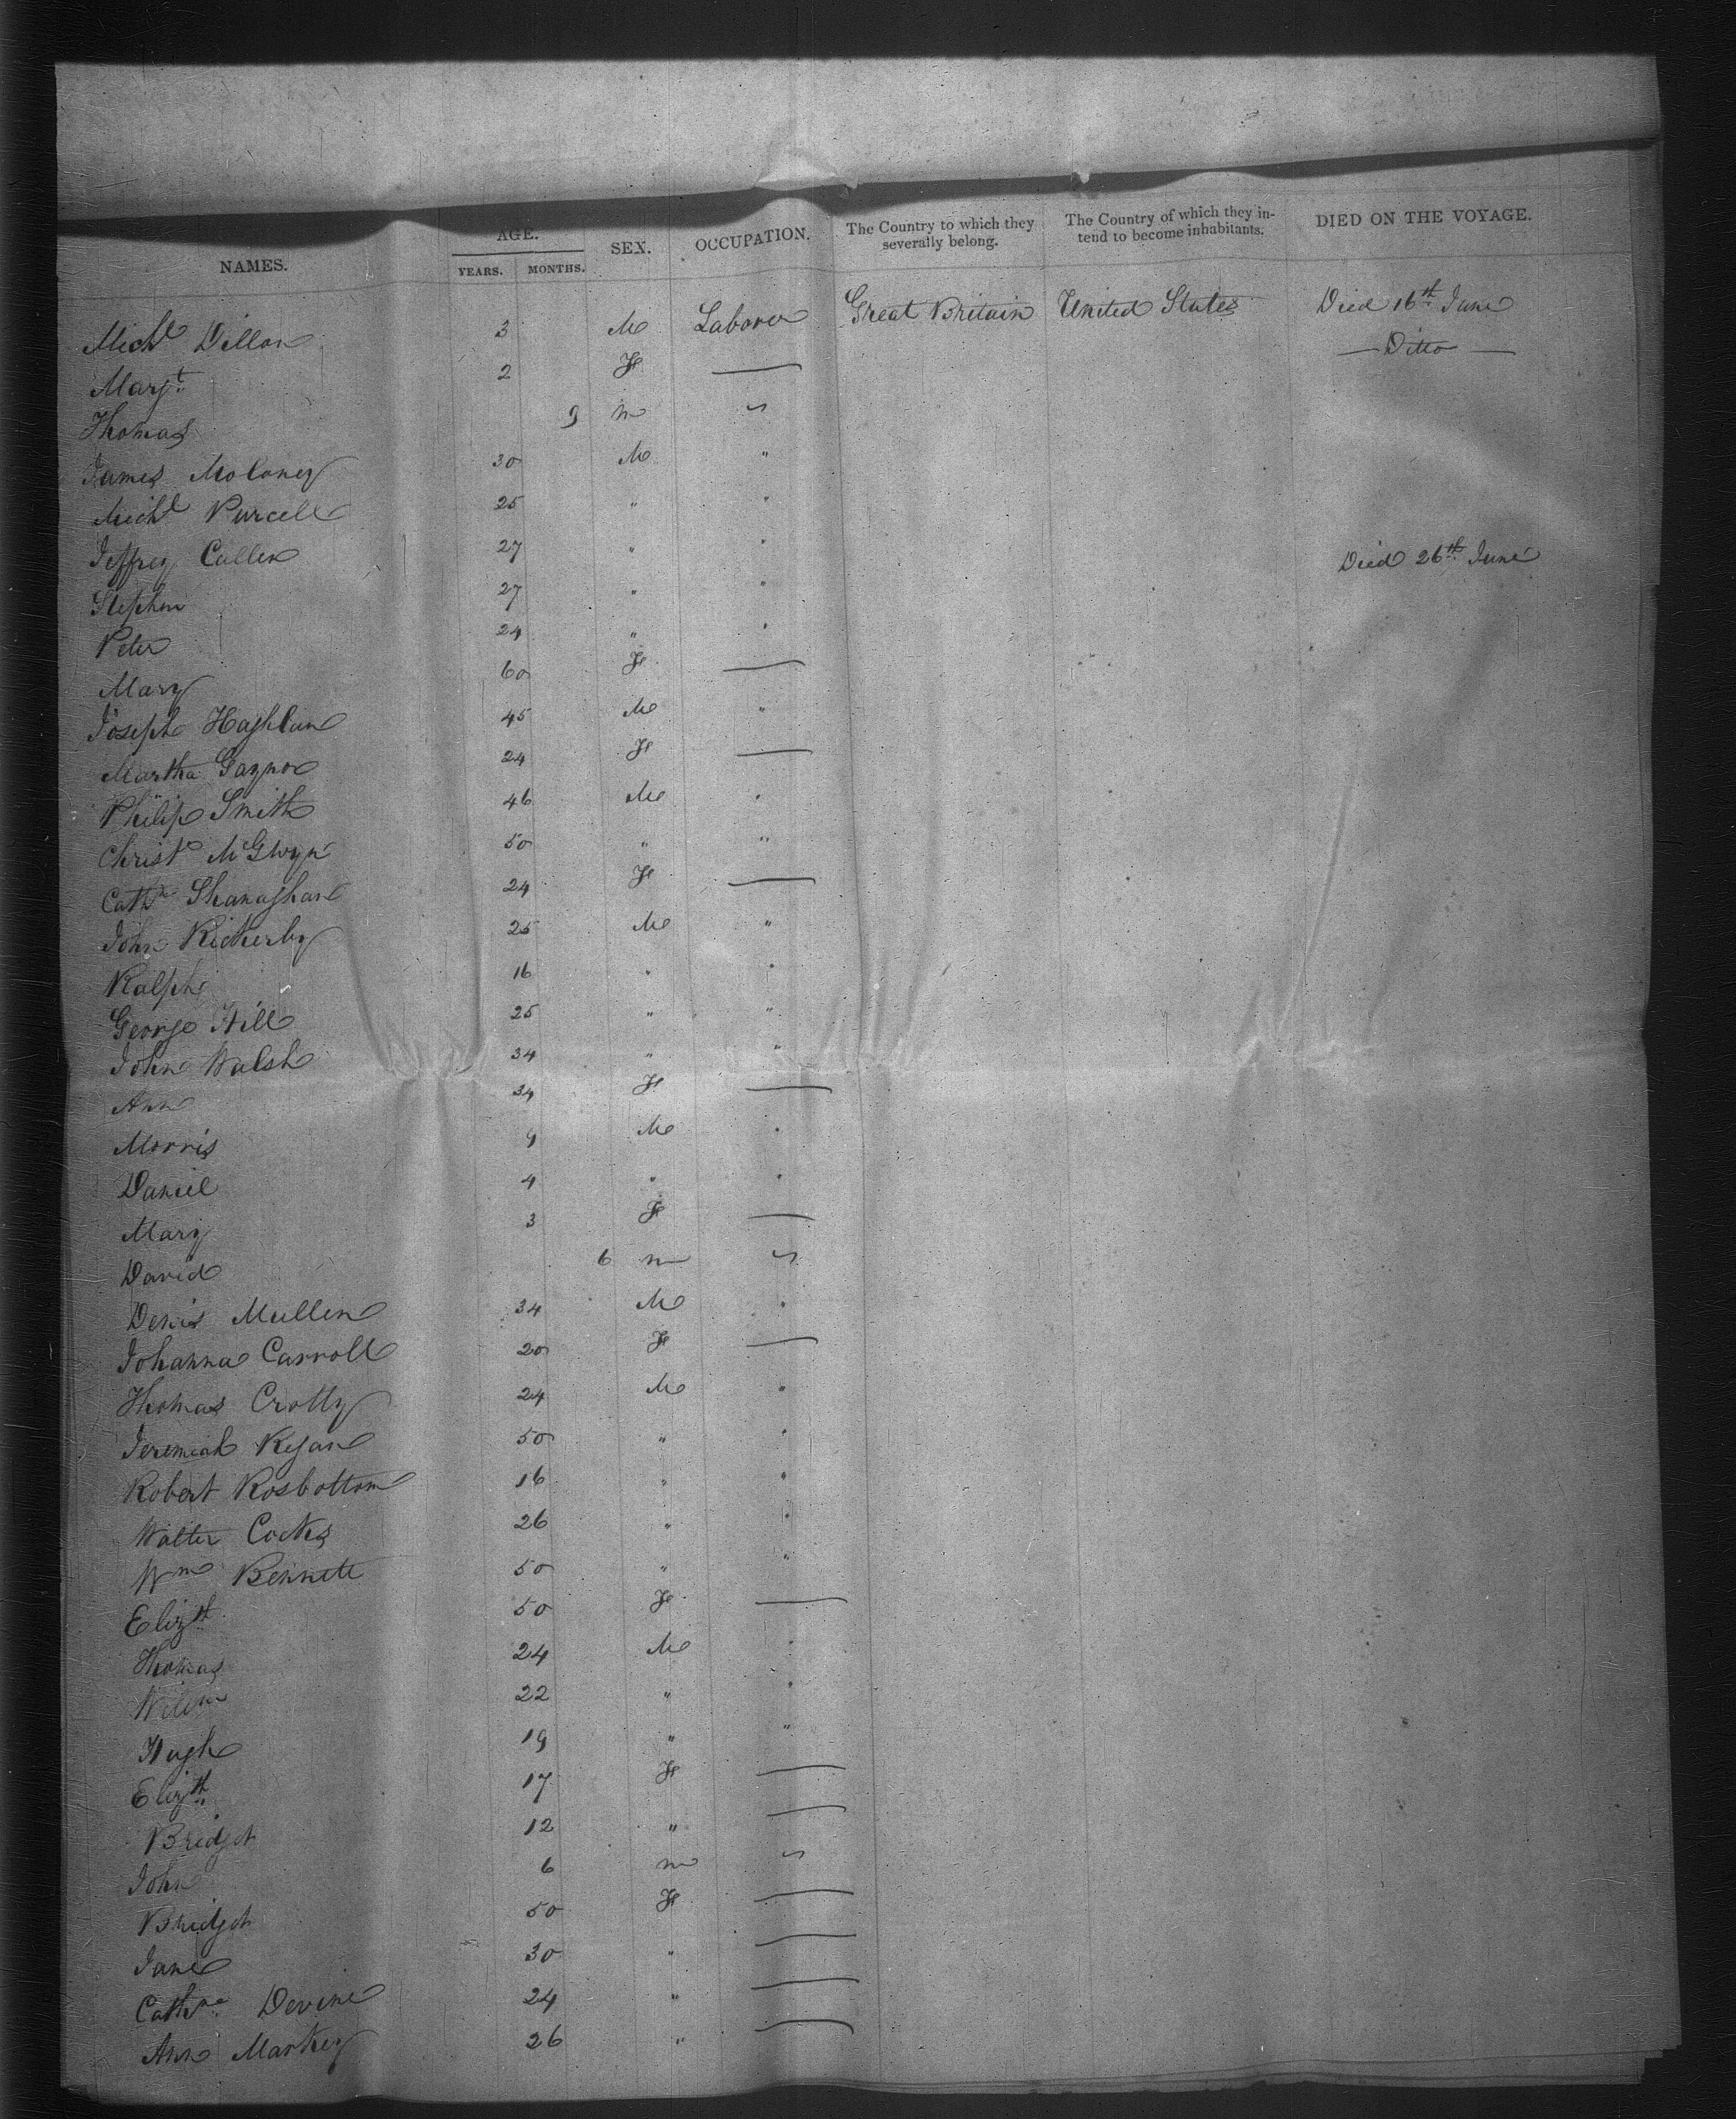 NAMES. AGE. YEARS. MONTHS. SEX. OCCUPATION. The Country to which they severally belong. The Country of which they intend to become inhabitants. DIED ON THE VOYAGE.
Michl Dillon 3 M Laborer Great Britain United States Died 16th June
Margt 2 F — — Ditto —
Thomas 9 m "
James Moloney 30 M "
Michl Purcell 25 " "
Jeffrey Cullen 27 " " Died 26th June
Stephen 27 " "
Peter 24 " "
Mary 60 F —
Joseph Haghlan 45 M "
Martha Gaynor 24 F —
Philip Smith 46 M "
Christr McGlwyn 50 " "
Cathne Shanaghan 24 F —
John Rickerby 25 M "
Ralph 16 " "
George Hill 25 " "
John Walsh 34 " "
Ann 34 F —
Morris 9 M "
Daniel 4 " "
Mary 3 F —
David 6 m "
Denis Mullen 34 M "
Johanna Carroll 20 F —
Thomas Crotty 24 M "
Jeremiah Regan 50 " "
Robert Rosbottom 16 " "
Walter Cocks 26 " "
Wm Bennett 50 " "
Elizth 50 F —
Thomas 24 M "
22 " "
Hugh 19 " "
Elizth 17 F —
Bridget 12 " —
John 6 m "
Bridget 50 F —
Jane 30 " —
Cathne Devine 24 " —
Ann Markey 26 " —